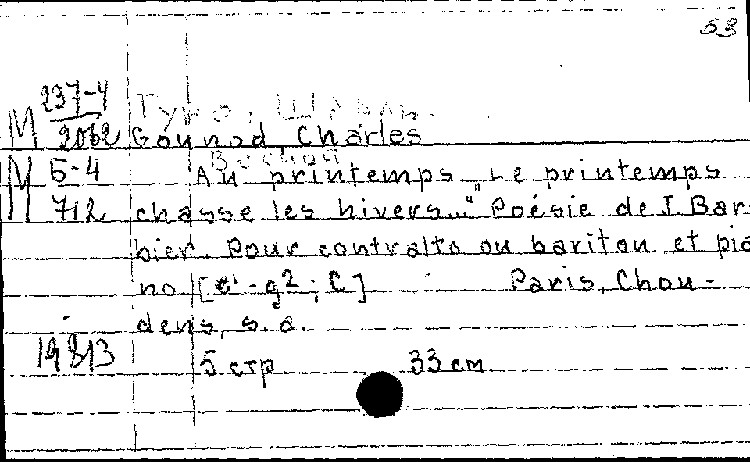 53
М 237-4 Гуно, Шарль.
2062 Gounod Charles
Весной
М Б-4 Au printemps „Le printemps
712 chasse les hivers..." Poésie de J. Bar-
bier. Pour contralto ou bariton et pia
no [e¹-g²; C] Paris, Chou-
dens, s.a.
19813
5 стр 33 см